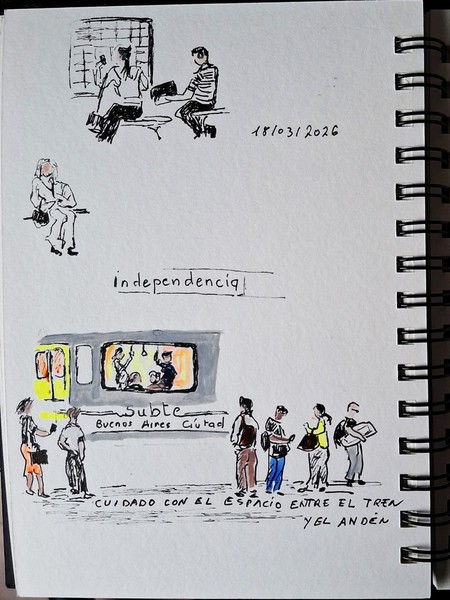 18/03/2026
independencia
Subte
Buenos Aires Ciutad
CUIDADO CON EL ESPACIO ENTRE EL TREN
Y EL ANDÉN